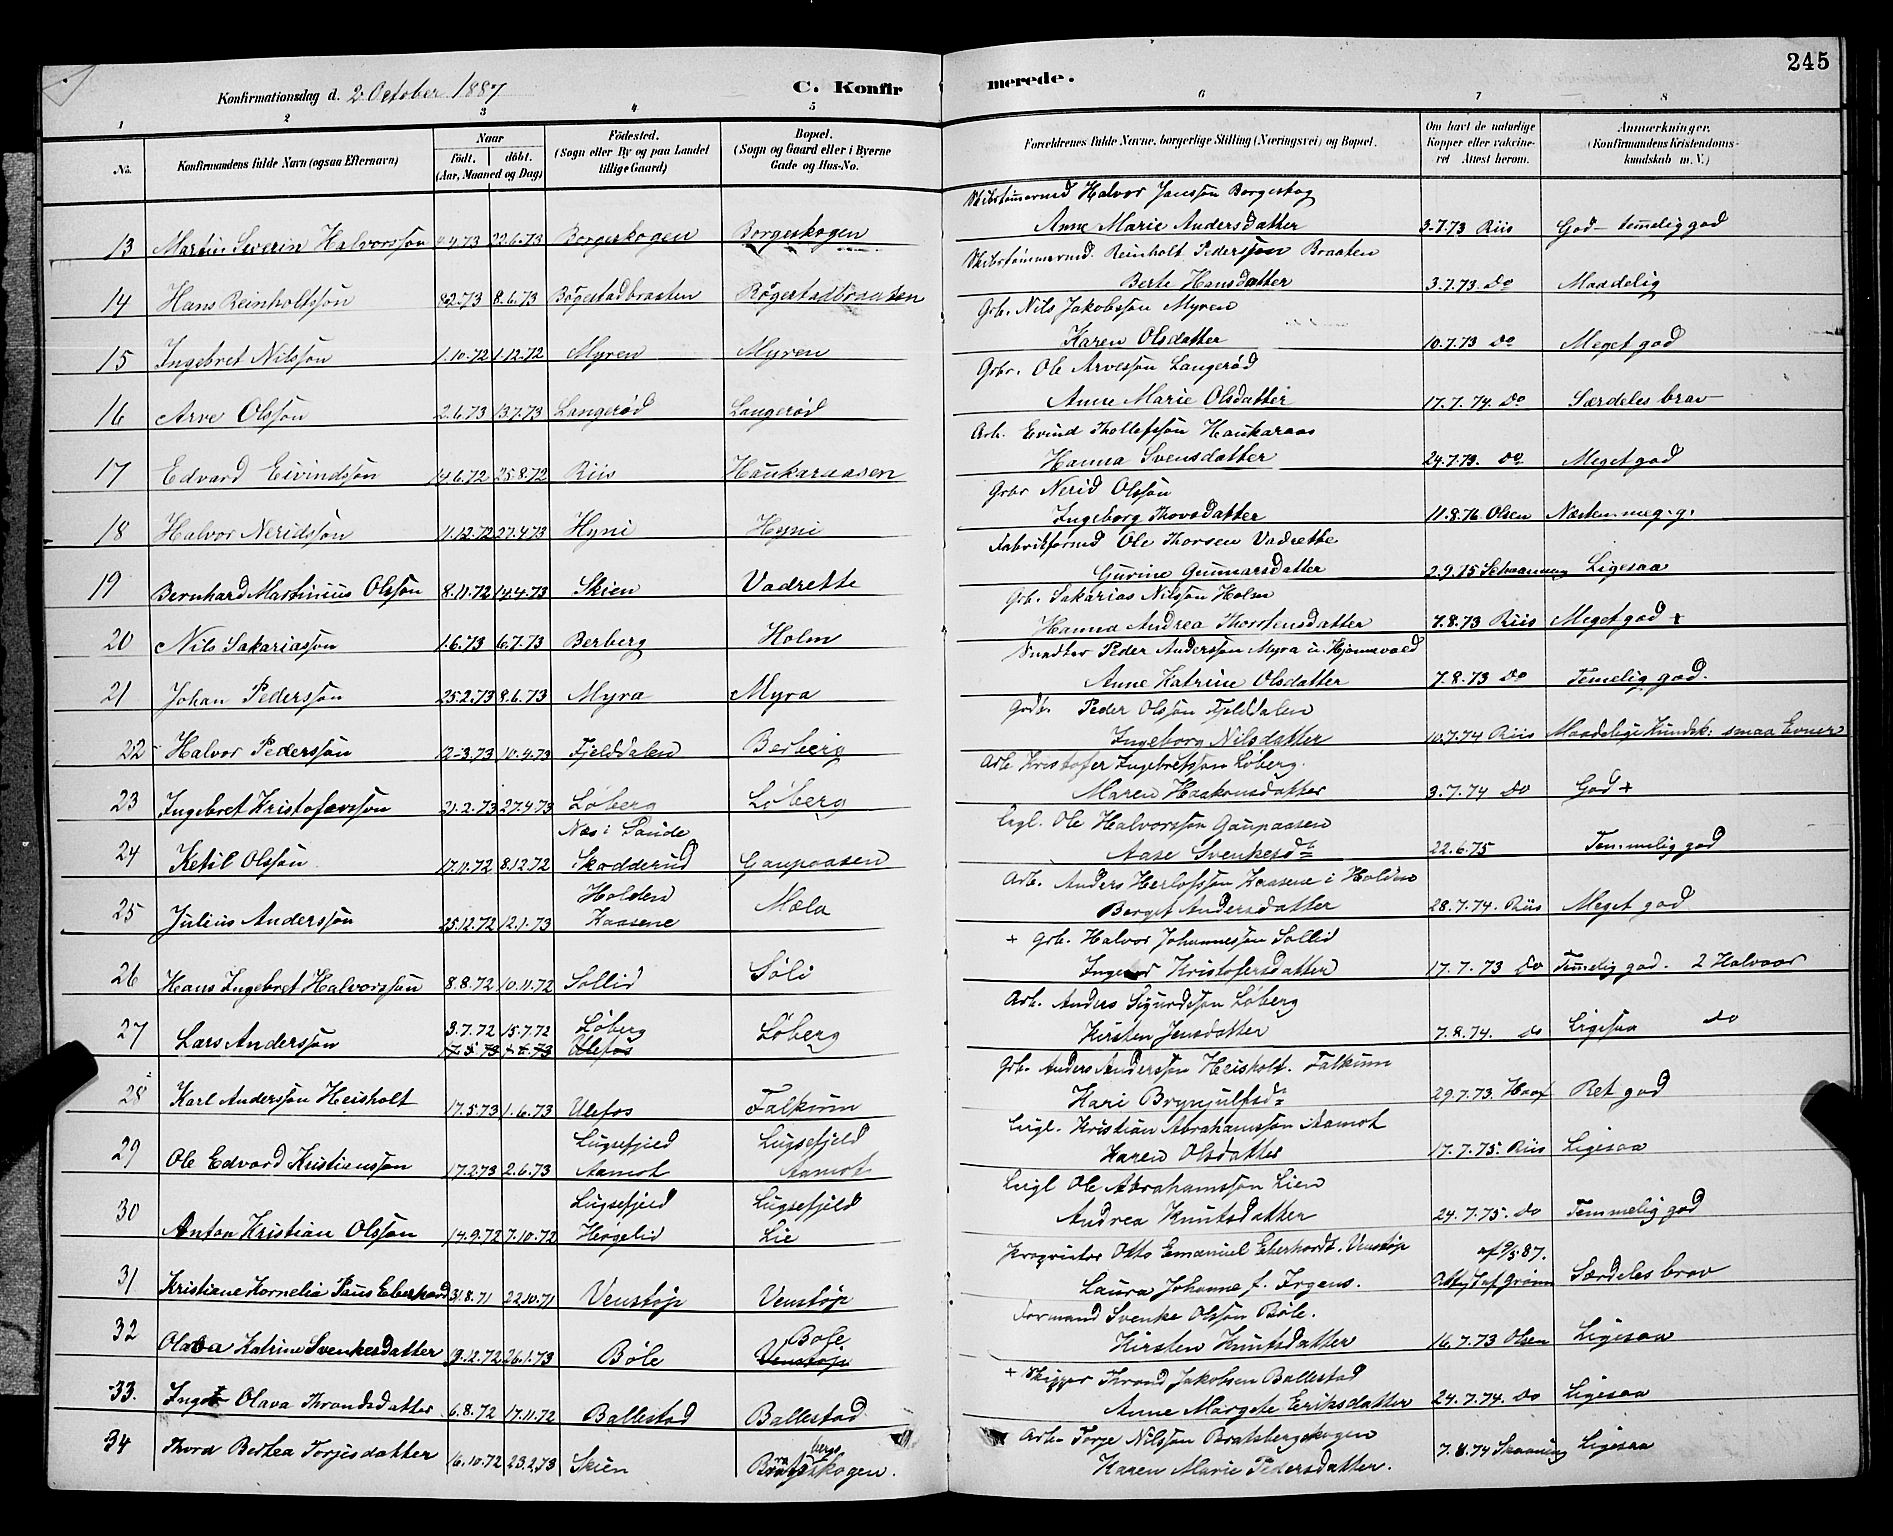 245
Konfirmationsdag d. 2 October 1887
C. Konfirmerede.
1 2 3 4 5 6 7 8
No.
Konfirmandens fulde Navn (ogsaa Efternavn)
Naar
födt. döbt.
(Aar, Maaned og Dag)
Födested.
(Sogn eller By og paa Landet
tillige Gaard)
Bopæl.
(Sogn og Gaard eller i Byerne
Gade og Hus-No.
Forældrenes fulde Navne, borgerlige Stilling (Næringsvei) og Bopæl.
Om havt de naturlige
Kopper eller vakcine-
ret Attest herom.
Anmærkninger.
(Konfirmandens Kristendoms-
kundskab m. V.)
Skibstømmermd Halvor Jansson Borgeskog
13 Martin Severin Halvorsson 4.4.73 22.6.73 Borgeskogen Borgeskogen Anne Marie Andersdatter 3.7.73 Riis God - temelig god
Skibstømmermd. Reinholt Pedersson Braaten
14 Hans Reinholtsson 8.2.73 8.6.73 Bögestadbraaten Bögestadbraaten Berte Hansdatter 3.7.73 do Maadelig
Grb. Nils Jakobsson Myren
15 Ingebret Nilsson 1.10.72 1.12.72 Myren Myren Karen Olsdatter 10.7.73 do Meget god
Grbr. Ole Arvesson Langerød
16 Arve Olsson 2.6.73 13.7.73 Langerød Langerød Anne Marie Olsdatter 17.7.74. do Særdeles brav
Arb. Evind Thollefsson Haukaraas
17 Edvard Eivindsson 14.6.72 25.8.72 Riis Haukaraasen Hanna Svensdatter 24.7.73. do Meget god
Grbr Nerid Olsson
18 Halvor Neridsson 11.12.72 27.4.73 Hyni Hyni Ingeborg Thovsdatter 11.8.76 Olsen Næsten meg. g.
Fabrikformd Ole Thorsen Vadrette
19 Bernhard Martinius Olsson 8.11.72 14.4.73 Skien Vadrette Gurine Gunnarsdatter 2.9.75 Schaanning Ligesaa
Grb. Sakarias Nilsson Holm
20 Nils Sakariasson 1.6.73 6.7.73 Berberg Holm Hanna Andrea Thorstensdatter 7.8.73 Riis Meget god +
Peder Andersson Myra u. Hjemsvold
21 Johan Pedersson 25.2.73 8.6.73 Myra Myra Anne Katrine Olsdatter 7.8.73 do Temelig god.
Peder Olsson Fjelddalen
22 Halvor Pedersson 12-3.73 10.4.73 Fjelddalen Berberg Ingeborg Nilsdatter 10.7.74 Riis Maadelige Kundsk: smaa Evner
Arb. Kristofer Ingebretsson Løberg.
23 Ingebret Kristofersson 21.2.73 27.4.73 Løberg Løberg Maren Haakonsdatter 3.7.74 do God +
Næs i Saude Ligl. Ole Halvorsson Gaupaasen
24 Ketil Olsson 17.11.72 8.12.72 Skodderud Gaupaasen Aase Svenkesd. 22.6.75 Temmelig god
Holden Arb. Anders Herlofsson Kaasene i Holden
25 Julius Andersson 25.12.72 12.1.73 Kaasene Mæla Berget Andersdatter 28.7.74. Riis Meget god
+ Grb. Halvor Johannesson Sollid
26 Hans Ingebret Halvorsson 8.8.72 10.11.72 Sollid Søli Kristofersdatter 17.7.73 do Temelig god. 2 Halvaar
Arb. Anders Sigurdsson Løberg
27 Lars Andersson 3.7.72 15.7.72 Løberg Løberg Kirsten Jensdatter 7.8.74. do Ligesaa do
17.5.73 1.6.73 Ulefos
Grb. Anders Andersson Heisholt. Falkum
28 Karl Andersson Heisholt 17.5.73 1.6.73 Ulefos Falkum Kari Brynjulfsd. 29.7.73. Ret god
Lugsefjeld Lugsefjeld Ligl. Kristian Abrahamsson Aamot
29 Ole Edvard Kristiansson 17.2.73 2.6.73 Aamot Aamot Karen Olsdatter 17.7.75. Riis Ligesaa
Lugsefjeld Lugsefjeld Ligl Ole Abrahamsson Lien
30 Anton Kristian Olsson 14.9.72 7.10.72 Hergelid Lie Andrea Knutsdatter 24.7.75. do Temmelig god
Proprietær Otto Emanuel Eberhardt. Venstøp af 9/5 87.
31 Kristiane Kornelia Paus Eberhard 31.8.71 22.10.71 Venstøp Venstøp Laura Johanne f. Irgens. Særdeles brav
Formand Svenke Olsson Böle.
32 Olava Katrine Svenkesdatter 19.12.72 26.1.73 Böle Böle Venstøp Kirsten Knutsdatter 16.7.73 Olsen Ligesaa
+ Skipper Thrond Jakobsen Ballestad
33. Olava Throndsdatter 6.8.72 17.11.72 Ballestad Ballestad Anne Margete Eriksdatter 24.7.74. do Ligesaa
Arb. Torje Nilsson Bratsbergskogen
34 Thora Bertea Torjisdatter 16.10.72 23.2.73 Skien Bratsbergskogen. Karen Marie Pedersdatter. 7.8.74 Skaaning Ligesaa